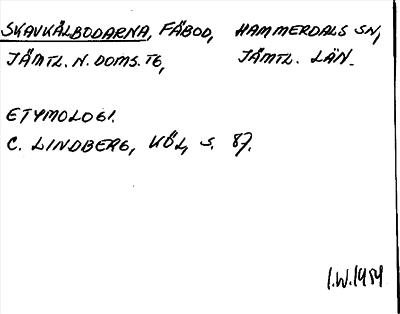 SKAVKÄLBODARNA, FÄBOD, HAMMERDALS SN,
JÄMTL. N. DOMS. TG, JÄMTL. LÄN.
ETYMOLOGI.
C. LINDBERG, KÖL, S. 87.
I.W. 1984